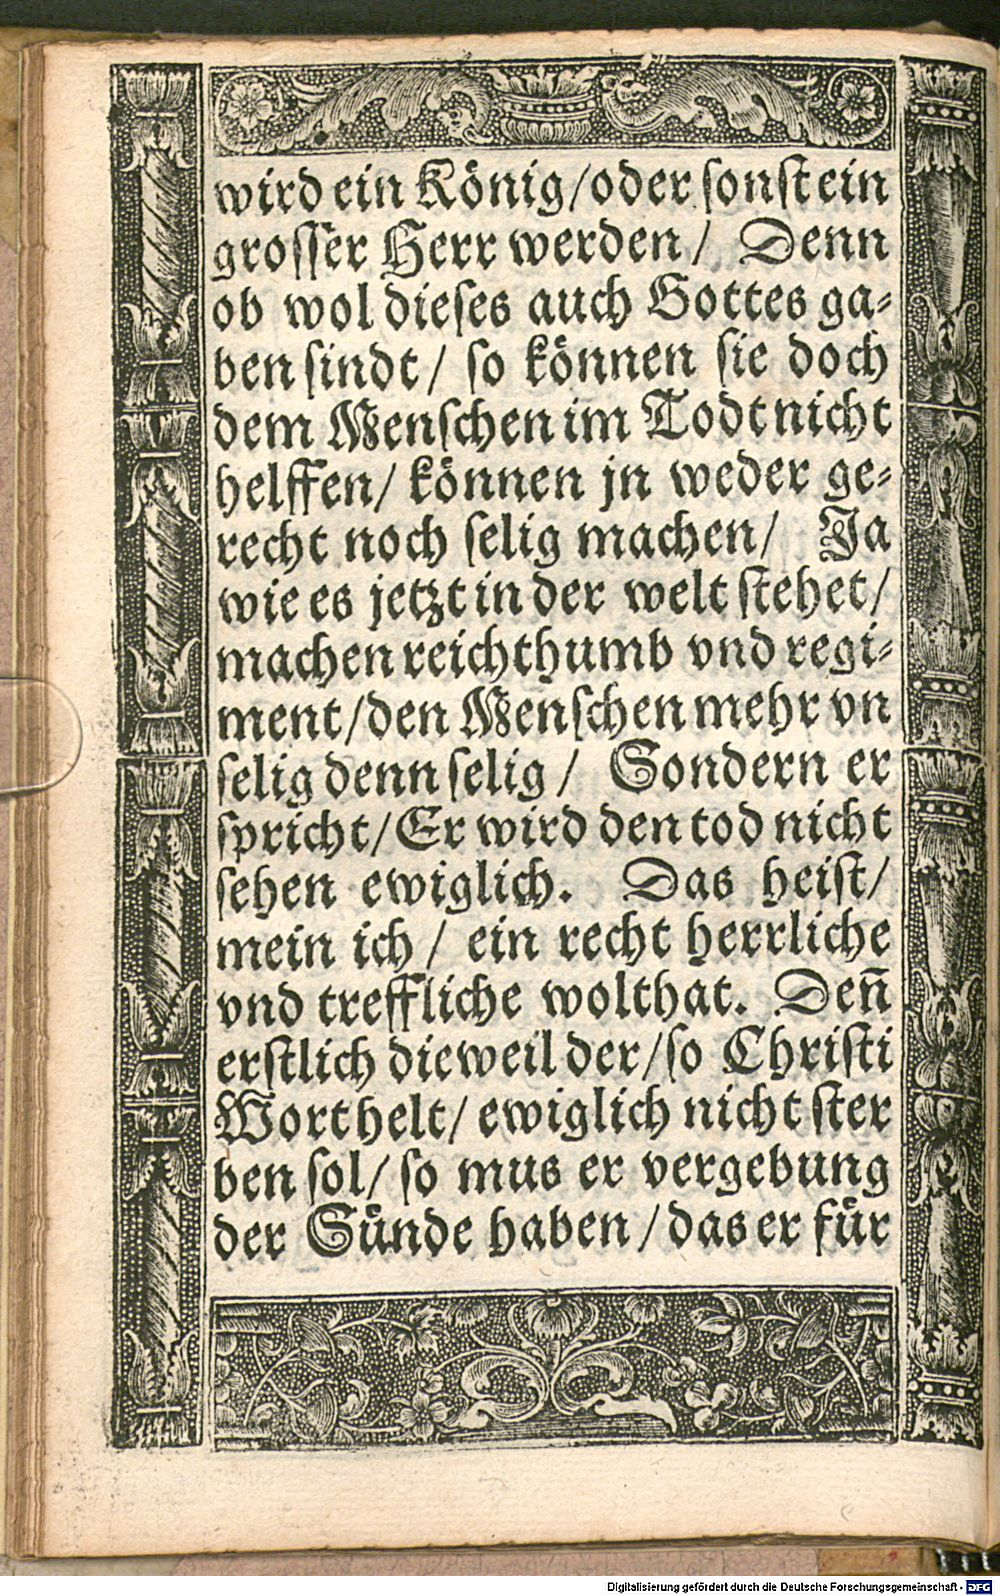 wird ein König/oder sonst ein
grosser Herr werden/ Denn
ob wol dieses auch Gottes ga⸗
ben sindt/ so können sie doch
dem Menschen im Todt nicht
helffen/ können jn weder ge⸗
recht noch selig machen/ Ja
wie es jetzt in der welt stehet/
machen reichthumb vnd regi⸗
ment/den Menschen mehr vn
selig denn selig/ Sondern er
spricht/Er wird den tod nicht
sehen ewiglich. Das heist/
mein ich/ ein recht herrliche
vnd treffliche wolthat. Deñ
erstlich dieweil der/so Christi
Wort helt/ ewiglich nicht ster
ben sol/ so mus er vergebung
der Sünde haben/das er für
Digitalisierung gefördert durch die Deutsche Forschungsgemeinschaft - DFG